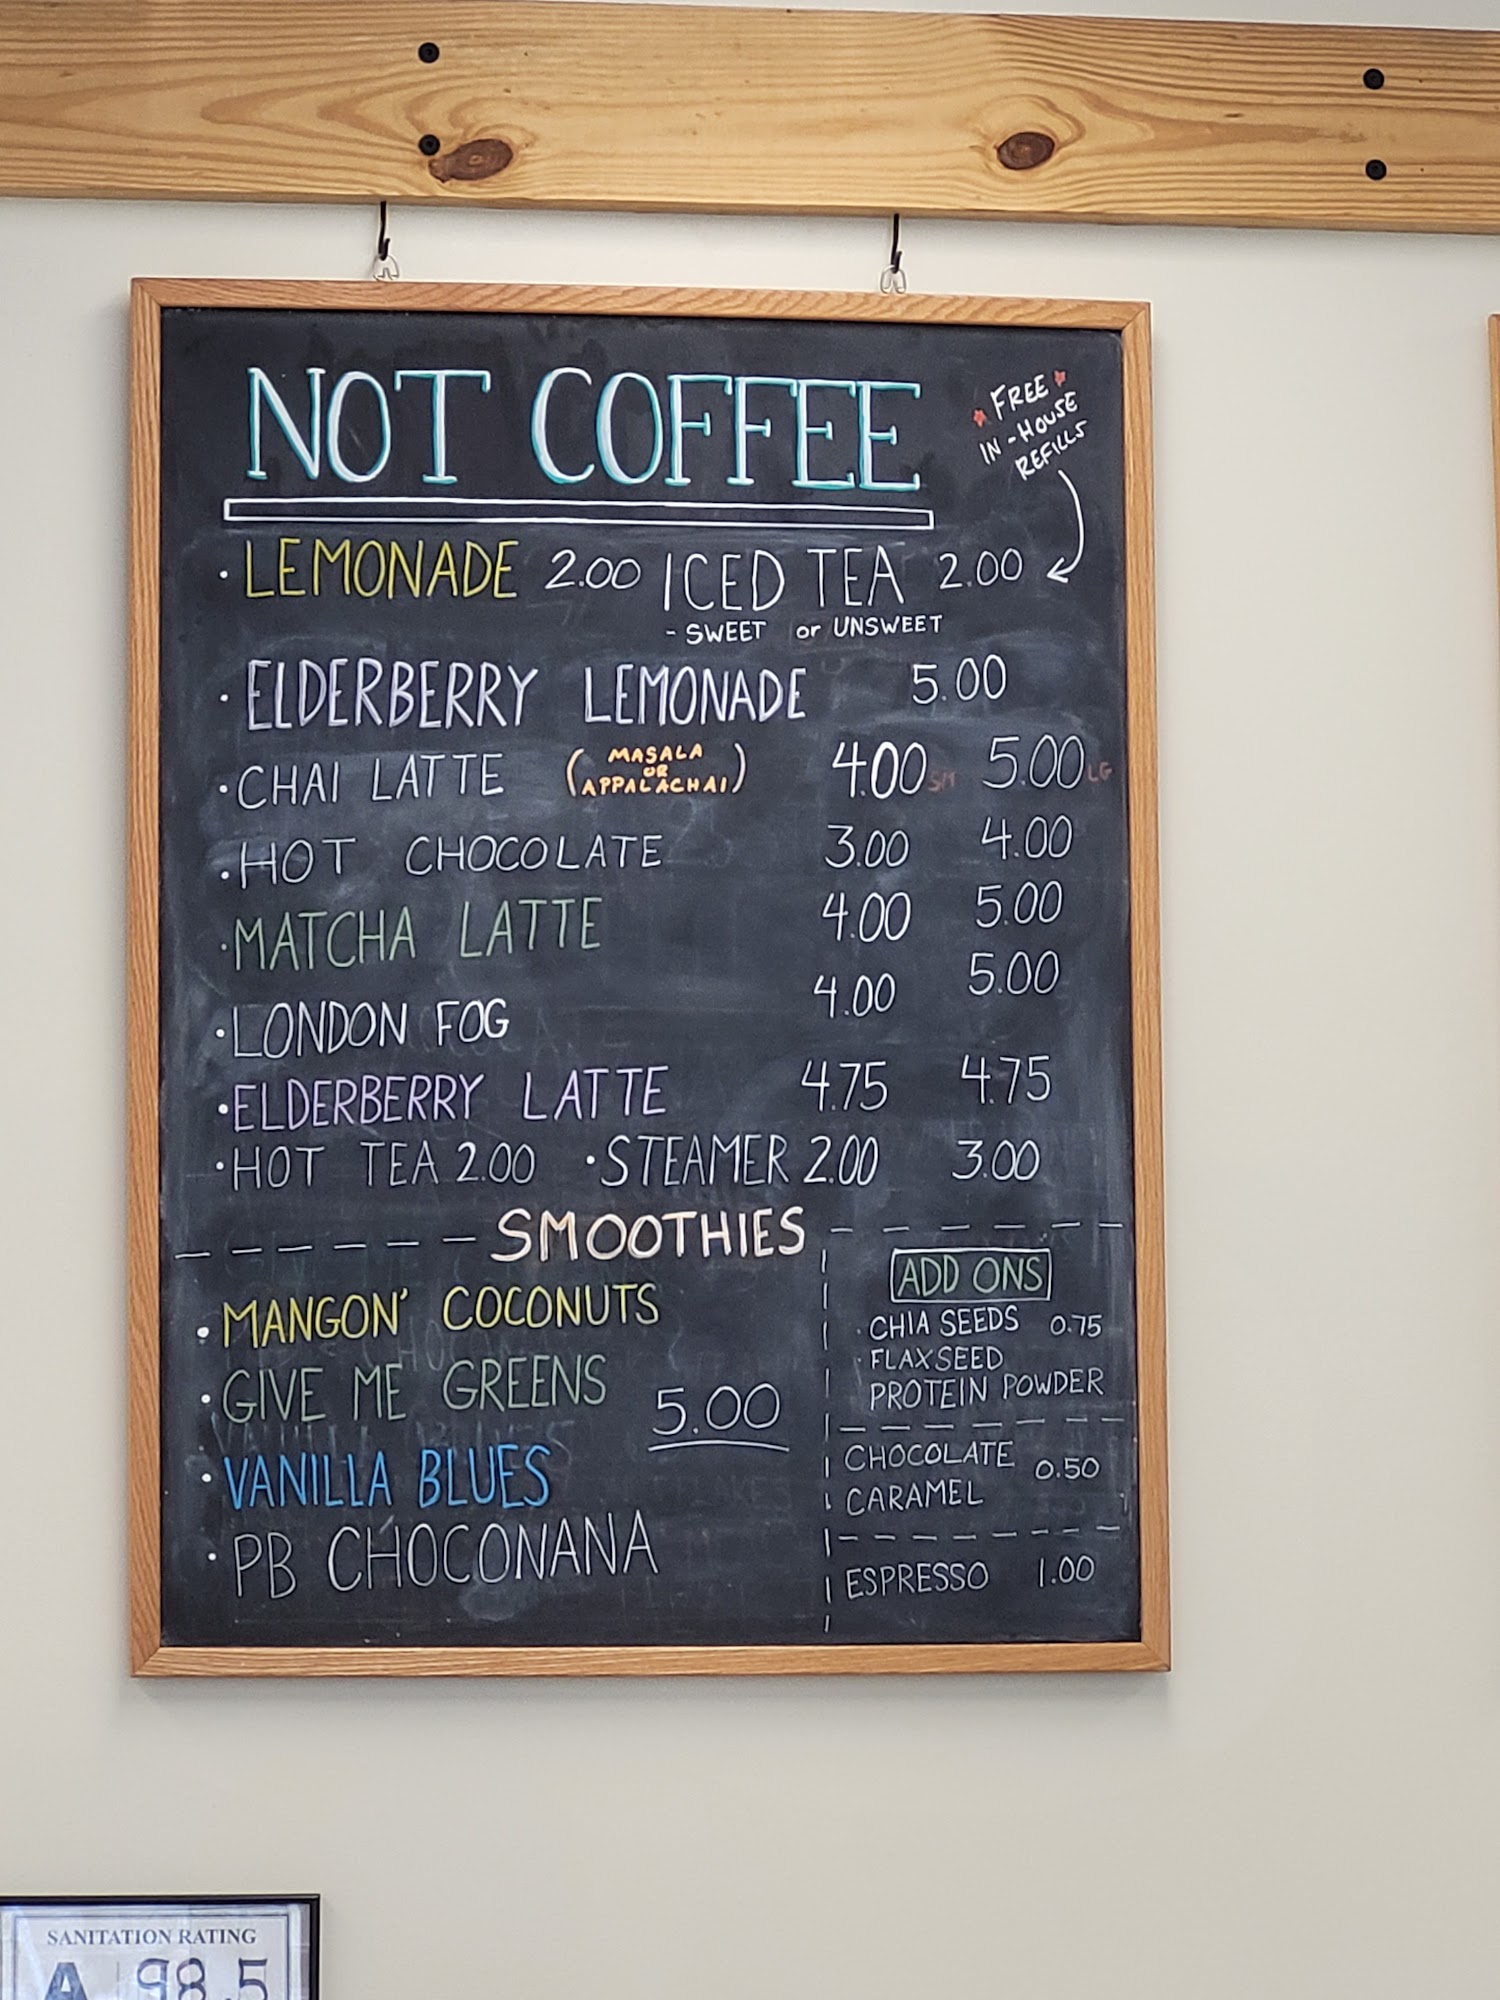 NOT COFFEE
FREE
IN-HOUSE
REFILLS
· LEMONADE 2.00 ICED TEA 2.00
- SWEET or UNSWEET
· ELDERBERRY LEMONADE 5.00
· CHAI LATTE (MASALA OR APPALACHAI) 4.00 SM 5.00 LG
· HOT CHOCOLATE 3.00 4.00
· MATCHA LATTE 4.00 5.00
· LONDON FOG 4.00 5.00
· ELDERBERRY LATTE 4.75 4.75
· HOT TEA 2.00 · STEAMER 2.00 3.00
SMOOTHIES
· MANGON' COCONUTS
· GIVE ME GREENS
5.00
· VANILLA BLUES
· PB CHOCONANA
ADD ONS
· CHIA SEEDS 0.75
· FLAXSEED
PROTEIN POWDER
CHOCOLATE 0.50
CARAMEL
ESPRESSO 1.00
SANITATION RATING
A 98.5